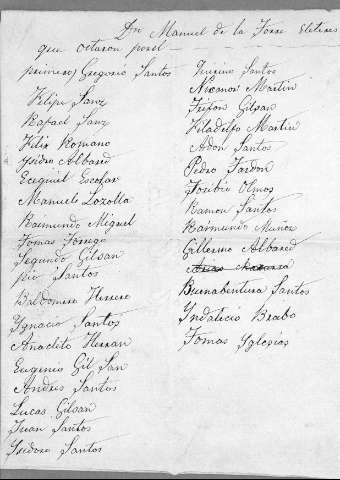 Dn Manuel de la Torre Eletores
que octaron porel
primero) Gregorio Santos
Felipe Sanz
Rafael Sanz
Felix Romano
Ysidro Albared
Ecequiel Escolar
Manuel Lozolla
Raimundo Miguel
Tomas Borrego
Segundo Gilsan
Pio Santos
Baldomero Herrero
Ygnacio Santos
Anacleto Herran
Eugenio Gil San
Andres Santos
Lucas Gilsan
Juan Santos
Ysidoro Santos
Quirino Santos
Nicanor Martin
Trifon Gilsan
Filadelfo Martin
Adon Santos
Pedro Tardon
Toribio Olmos
Ramon Santos
Raimundo Muñoz
Gillermo Albared
Buenabentura Santos
Yndalecio Brabo
Tomas Yglesias